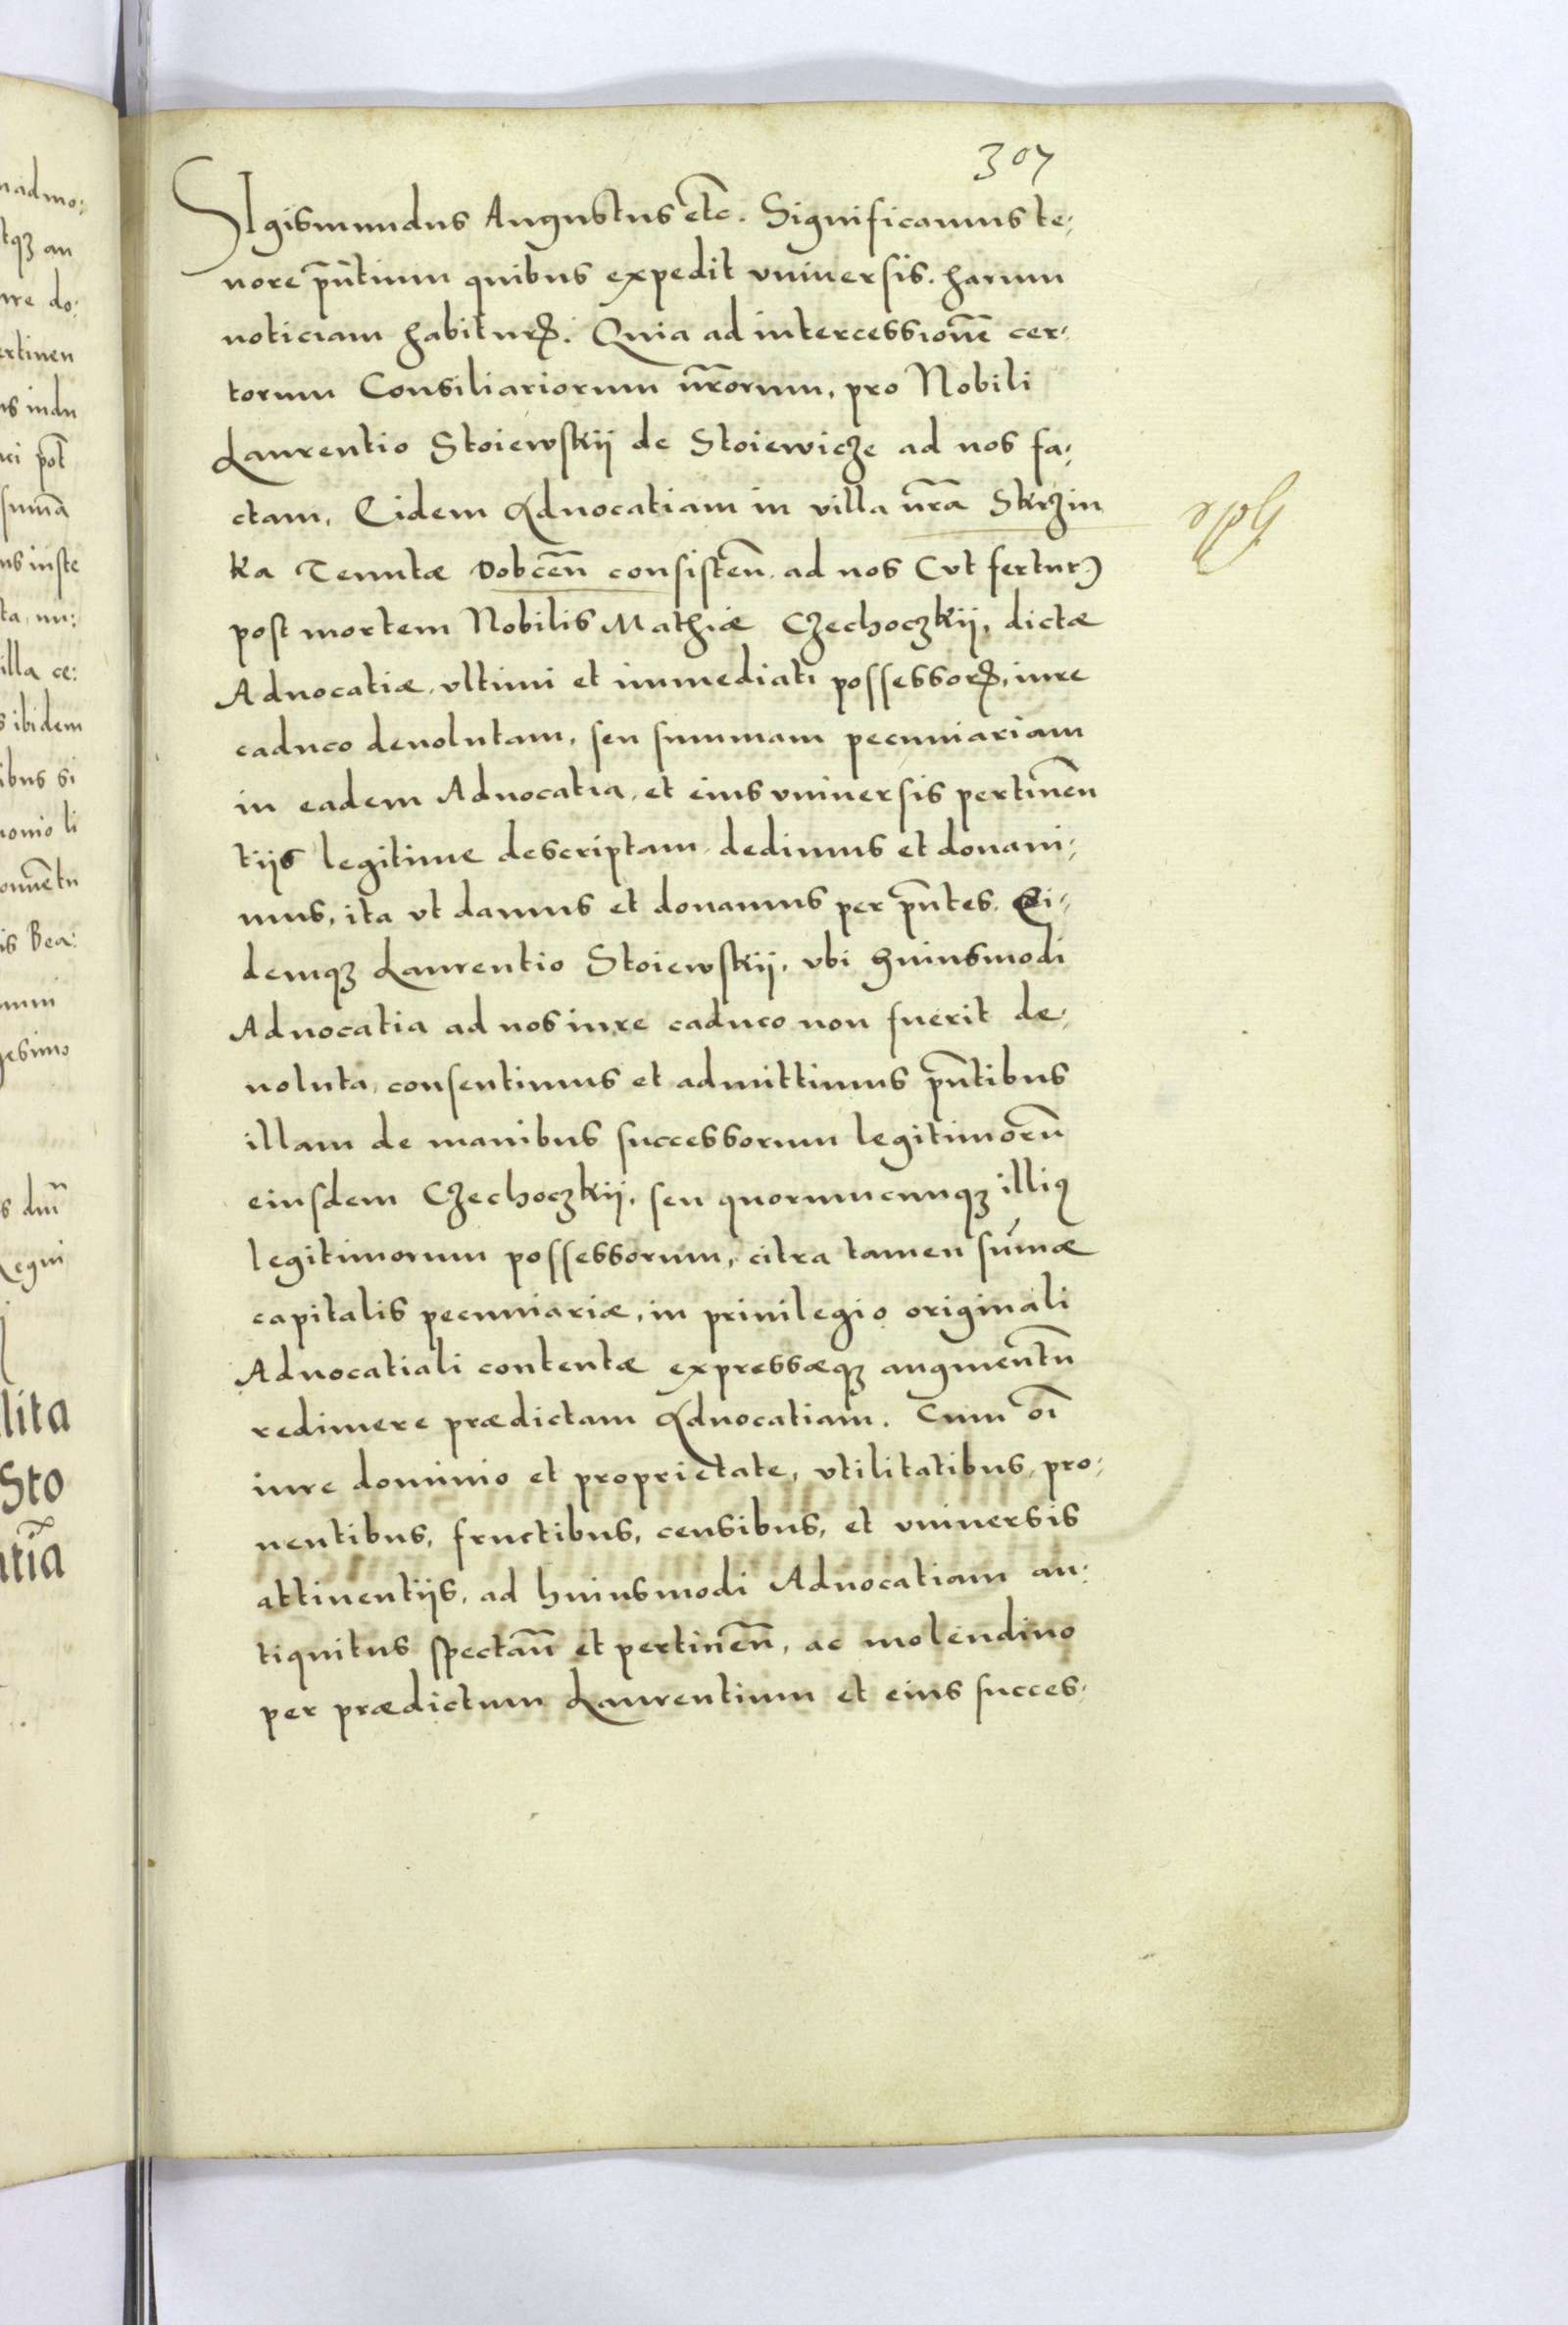 307
SIgismundus Augustus etc̃. Significamus te:
nore pñtium quibus expedit vniuersis. harum
noticiam habiturꝭ. Quia ad intercessionẽ cer:
torum Consiliariorum nr̃orum, pro Nobili
Laurentio Stoiewskij de Stoiewicze ad nos fa:
ctam, Eidem Aduocatiam in villa nr̃a Skrzin
ka Tenutæ Dobceñ consisteñ. ad nos (vt fertur)
post mortem Nobilis Mathiæ Czechoczkij, dictæ
Aduocatiæ, vltimi et immediati possessorꝭ, iure
caduco deuolutam, seu summam pecuniariam
in eadem Aduocatia, et eius vniuersis pertineñ
tijs legitime descriptam, dedimus et donaui:
mus, ita vt damus et donamus per pñtes. Ei:
demqꝫ Laurentio Stoiewskij, vbi huiusmodi
Aduocatia ad nos iure caduco non fuerit de:
uoluta, consentimus et admittimus pñtibus
illam de manibus successorum legitimorũ
eiusdem Czechoczkij, seu quorumcunqꝫ illiꝯ
legitimorum possessorum, citra tamen sum̃æ
capitalis pecuniariæ, in priuilegio originali
Aduocatiali contentæ expressæqꝫ augmentũ
redimere prædictam Aduocatiam. Cum oĩ
iure dominio et proprietate, vtilitatibus, pro:
uentibus, fructibus, censibus, et vniuersis
attinentijs, ad huiusmodi Aduocatiam an:
tiquitus spectañ et pertineñ, ac molendino
per prædictum Laurentium et eius succes: